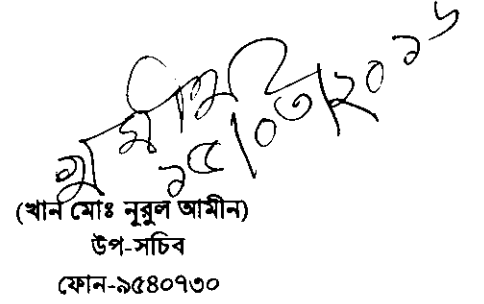 ১৫/০৩/২০১৬
(খান মোঃ নূরুল আমীন)
উপ-সচিব
ফোন-৯৫৪০৭৩০